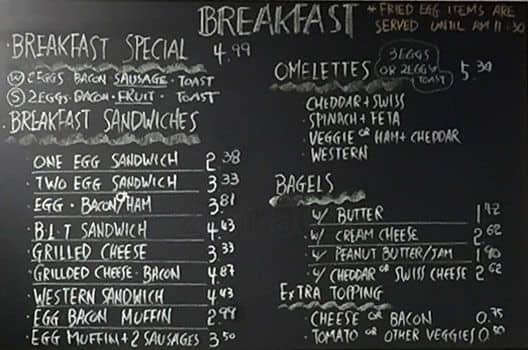 BREAKFAST
* FRIED EGG ITEMS ARE
SERVED UNTIL AM 11:30
· BREAKFAST SPECIAL 4.99
(W) 2 EGGS BACON SAUSAGE · TOAST
(S) 2 EGGS · BACON · FRUIT · TOAST
· BREAKFAST SANDWICHES
· ONE EGG SANDWICH 2.38
· TWO EGG SANDWICH 3.33
· EGG · BACON OR HAM 3.81
· B.L.T SANDWICH 4.43
· GRILLED CHEESE 3.33
· GRILLDED CHEESE · BACON 4.87
· WESTERN SANDWICH 4.43
· EGG BACON MUFFIN 2.99
· EGG MUFFIN + 2 SAUSAGES 3.50
OMELETTES 5.30
3 EGGS
OR 2 EGGS
TOAST
· CHEDDAR + SWISS
· SPINACH + FETA
· VEGGIE OR HAM + CHEDDAR
· WESTERN
BAGELS
· W/ BUTTER 1.42
· W/ CREAM CHEESE 2.62
· W/ PEANUT BUTTER/JAM 1.90
· W/ CHEDDAR OR SWISS CHEESE 2.62
EXTRA TOPPING
· CHEESE OR BACON 0.75
· TOMATO OR OTHER VEGGIES 0.50